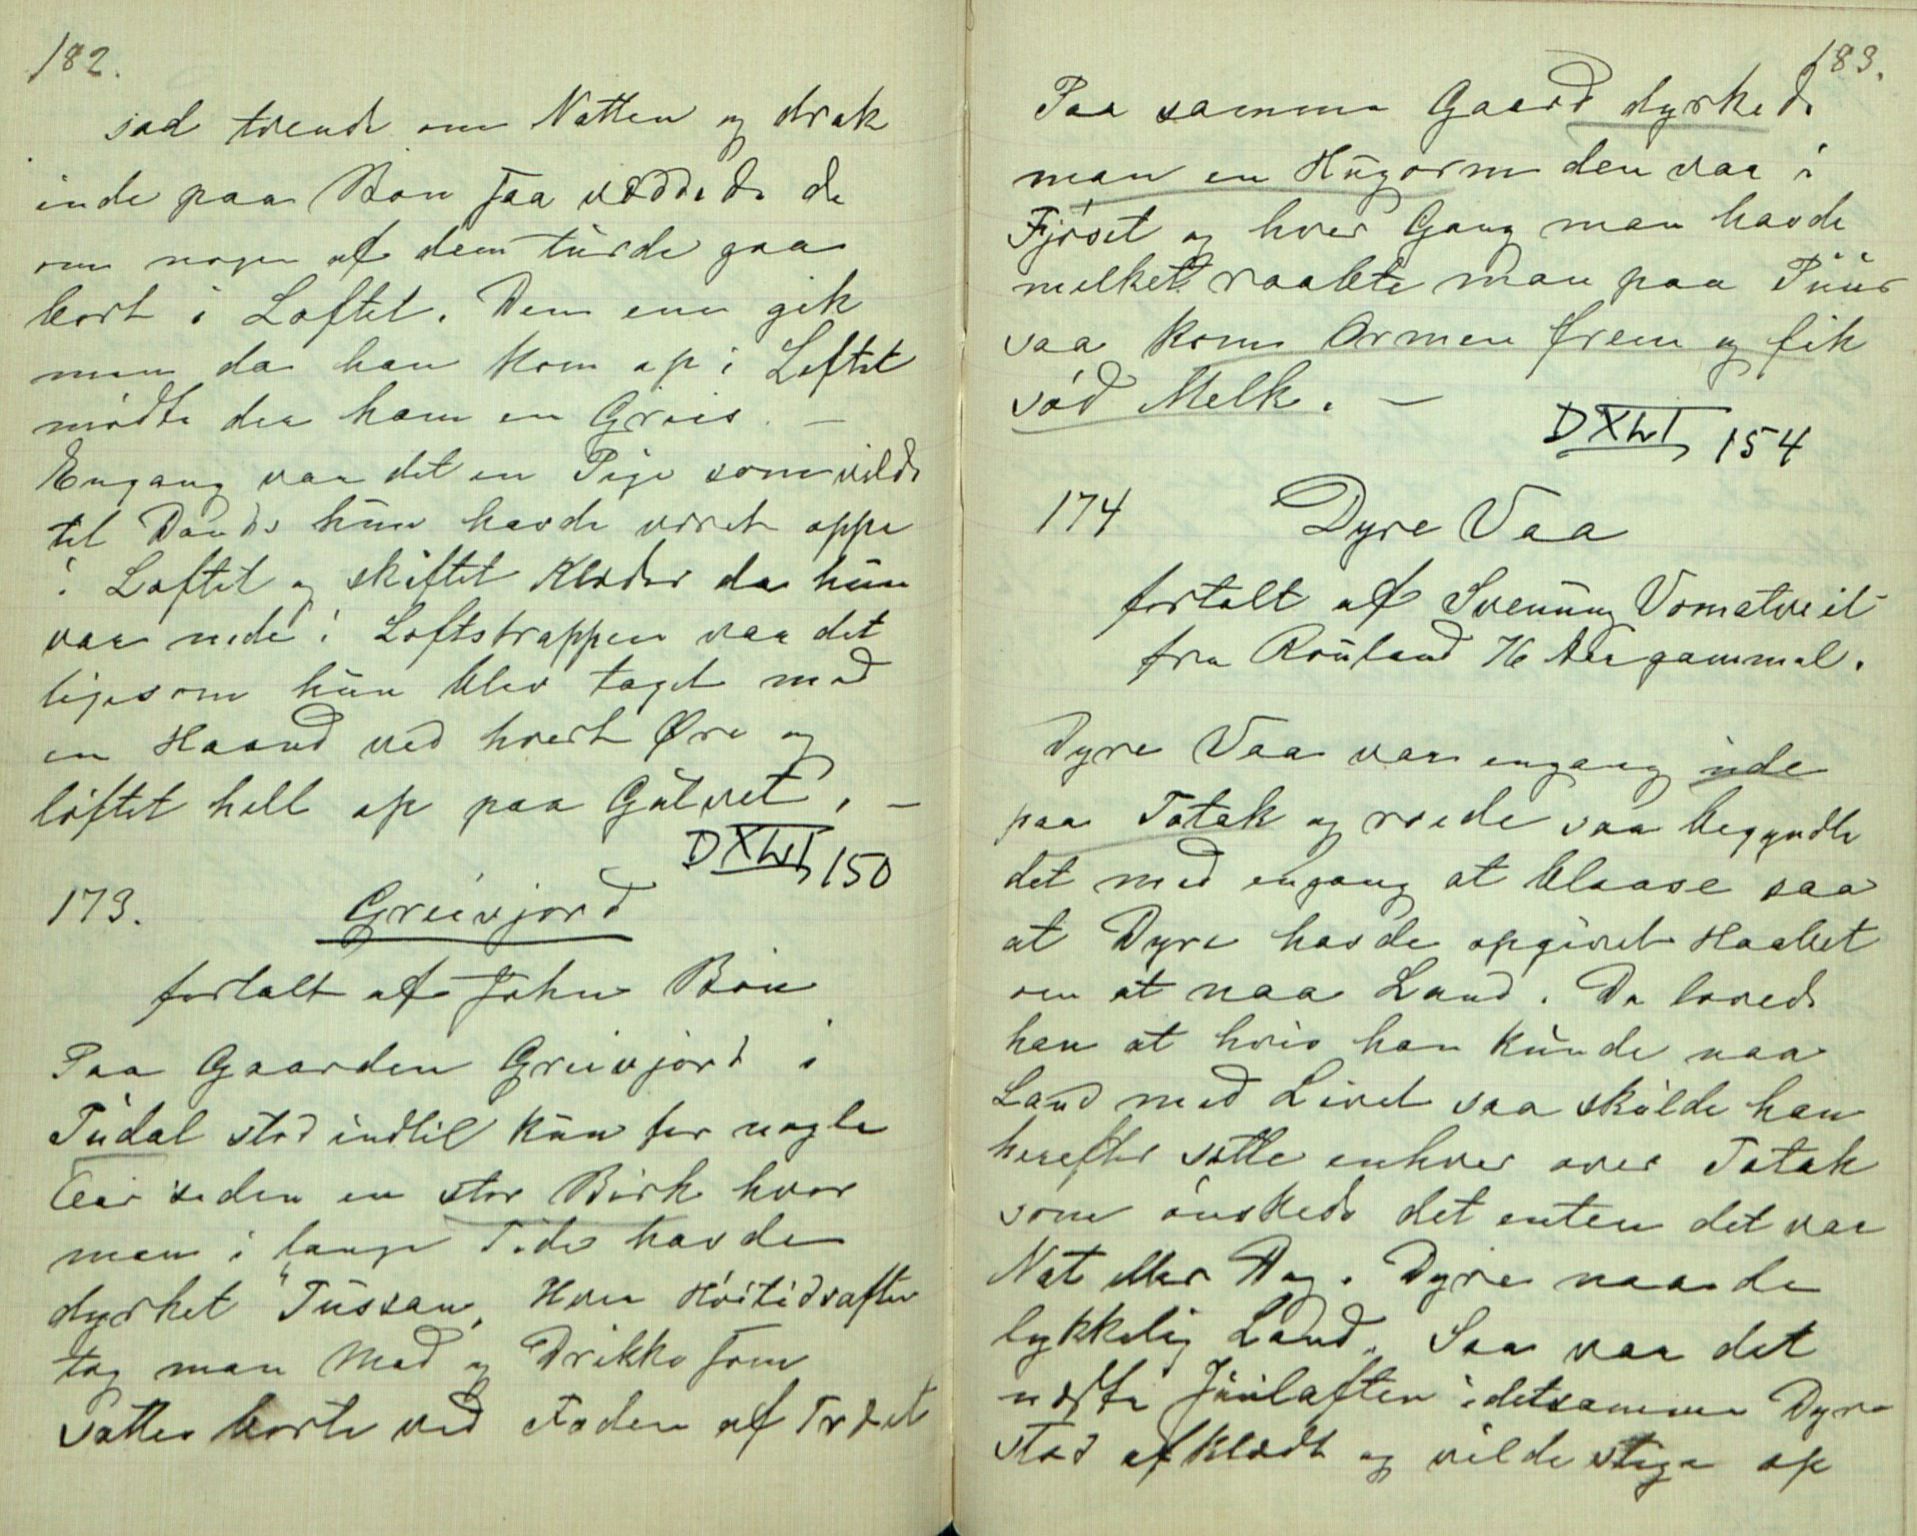 182.
sad trende om Natten og drak
inde paa Bøn saa væddede de
om nogen af dem turde gaa
bort i Loftet. Den ene gik
men da han kom op i Loftet
mødte der ham en Griis. —
Engang var det en Pige som vilde
til Dands hun havde været oppe
i Loftet og skiftet Klæder da hun
var nede i Loftstrappen var det
ligesom hun blev taget med
en Haand ved hvert Øre og
løftet hell op paa Gulvet. —
150
173. Greivjord
fortalt af John Bøn
Paa Gaarden Greivjord i
Tudal stod indtil kun for nogle
Aar siden en stor Birk hvor
man i lange Tider havde
dyrket "Tussan" Hver Høitidsaften
tog man Mad og Drikke som
sattes borte ved Foden af Træet
183.
Paa samme Gaard dyrkede
man en Hugorm den var i
Fjøset og hver Gang man havde
melket raabte man paa Puus
saa kom Ormen frem og fik
sød Melk. —
154
174 Dyre Vaa
fortalt af Svenung Vomatveit
fra Rauland 76 Aar gammel.
Dyre Vaa var engang ude
paa Totak og roede saa begyndte
det med engang at blaase saa
at Dyre havde opgivet Haabet
om at naa Land. Da lovede
han at hvis han kunde naa
Land med Livet saa skulde han
herefter sætte enhver over Totak
som ønskede det enten det var
Nat eller Dag. Dyre naade
lykkelig Land. Saa var det
næste Juulaften idetsamme Dyre
stod afklædt og vilde stige op